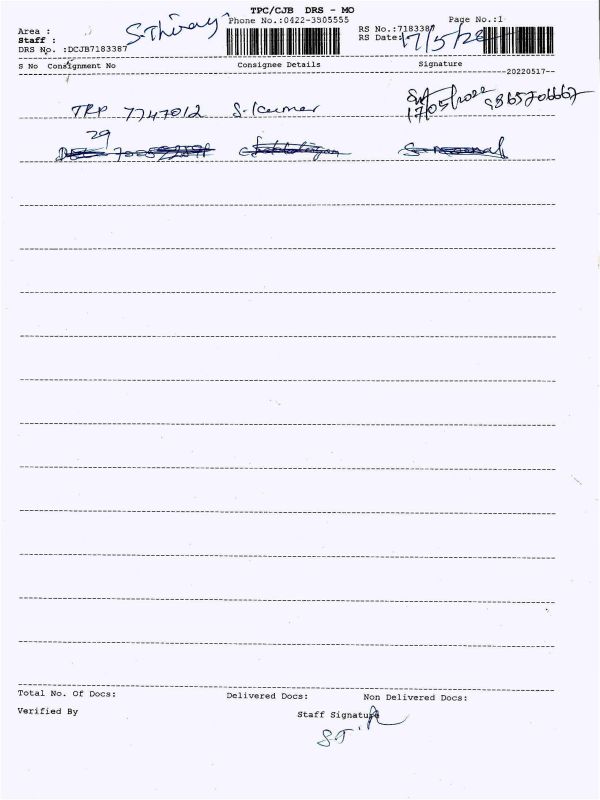 TPC/CJB DRS - MO
Area : Phone No.:0422-3305555 RS No.:7183387 Page No.:1
Staff : S. Thiraj RS Date: 17/5/22
DRS No. :DCJB7183387
S No Consignment No Consignee Details Signature
20220517
TRP 7747012 S. Kumar 17/05/2022
29
Total No. Of Docs: Delivered Docs: Non Delivered Docs:
Verified By Staff Signature